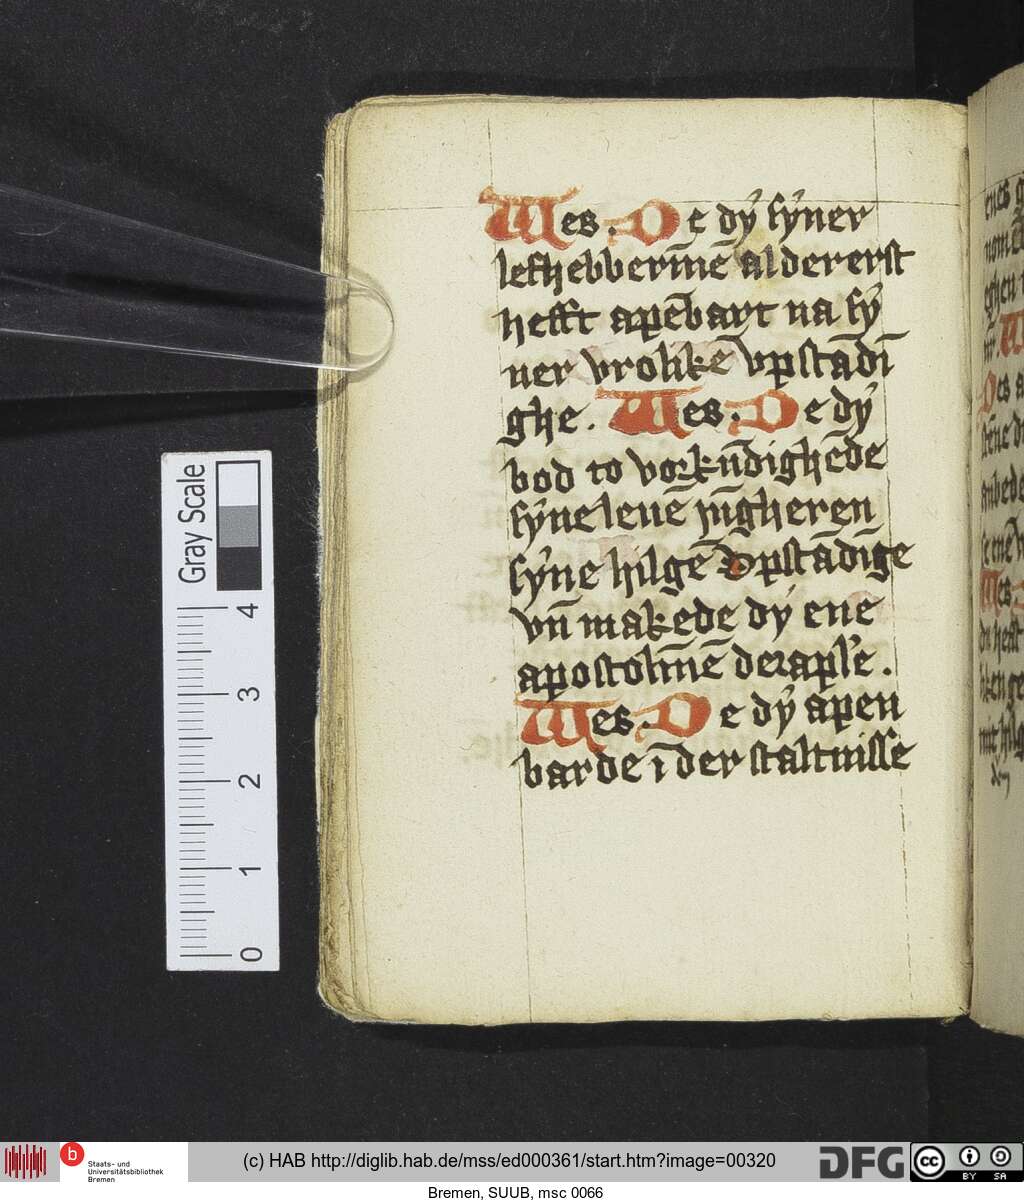 Wes. De dẏ sẏner
lefhebberīnē aldererst
hefft apēbart na sẏ
ner vrolikē vpstādī
ghe. Wes. De dẏ
bod to vorkūdighēde
sẏne leuē jūgheren
sẏne hilgē vpstādīge
vn̄ makede dẏ ene
apostolīnē der apl'e.
Wes. De dẏ apen
barde ī der staltnisse
Gray Scale
4
3
2
1
0
b
Staats- und
Universitätsbibliothek
Bremen
(c) HAB http://diglib.hab.de/mss/ed000361/start.htm?image=00320
DFG
cc
BY SA
Bremen, SUUB, msc 0066